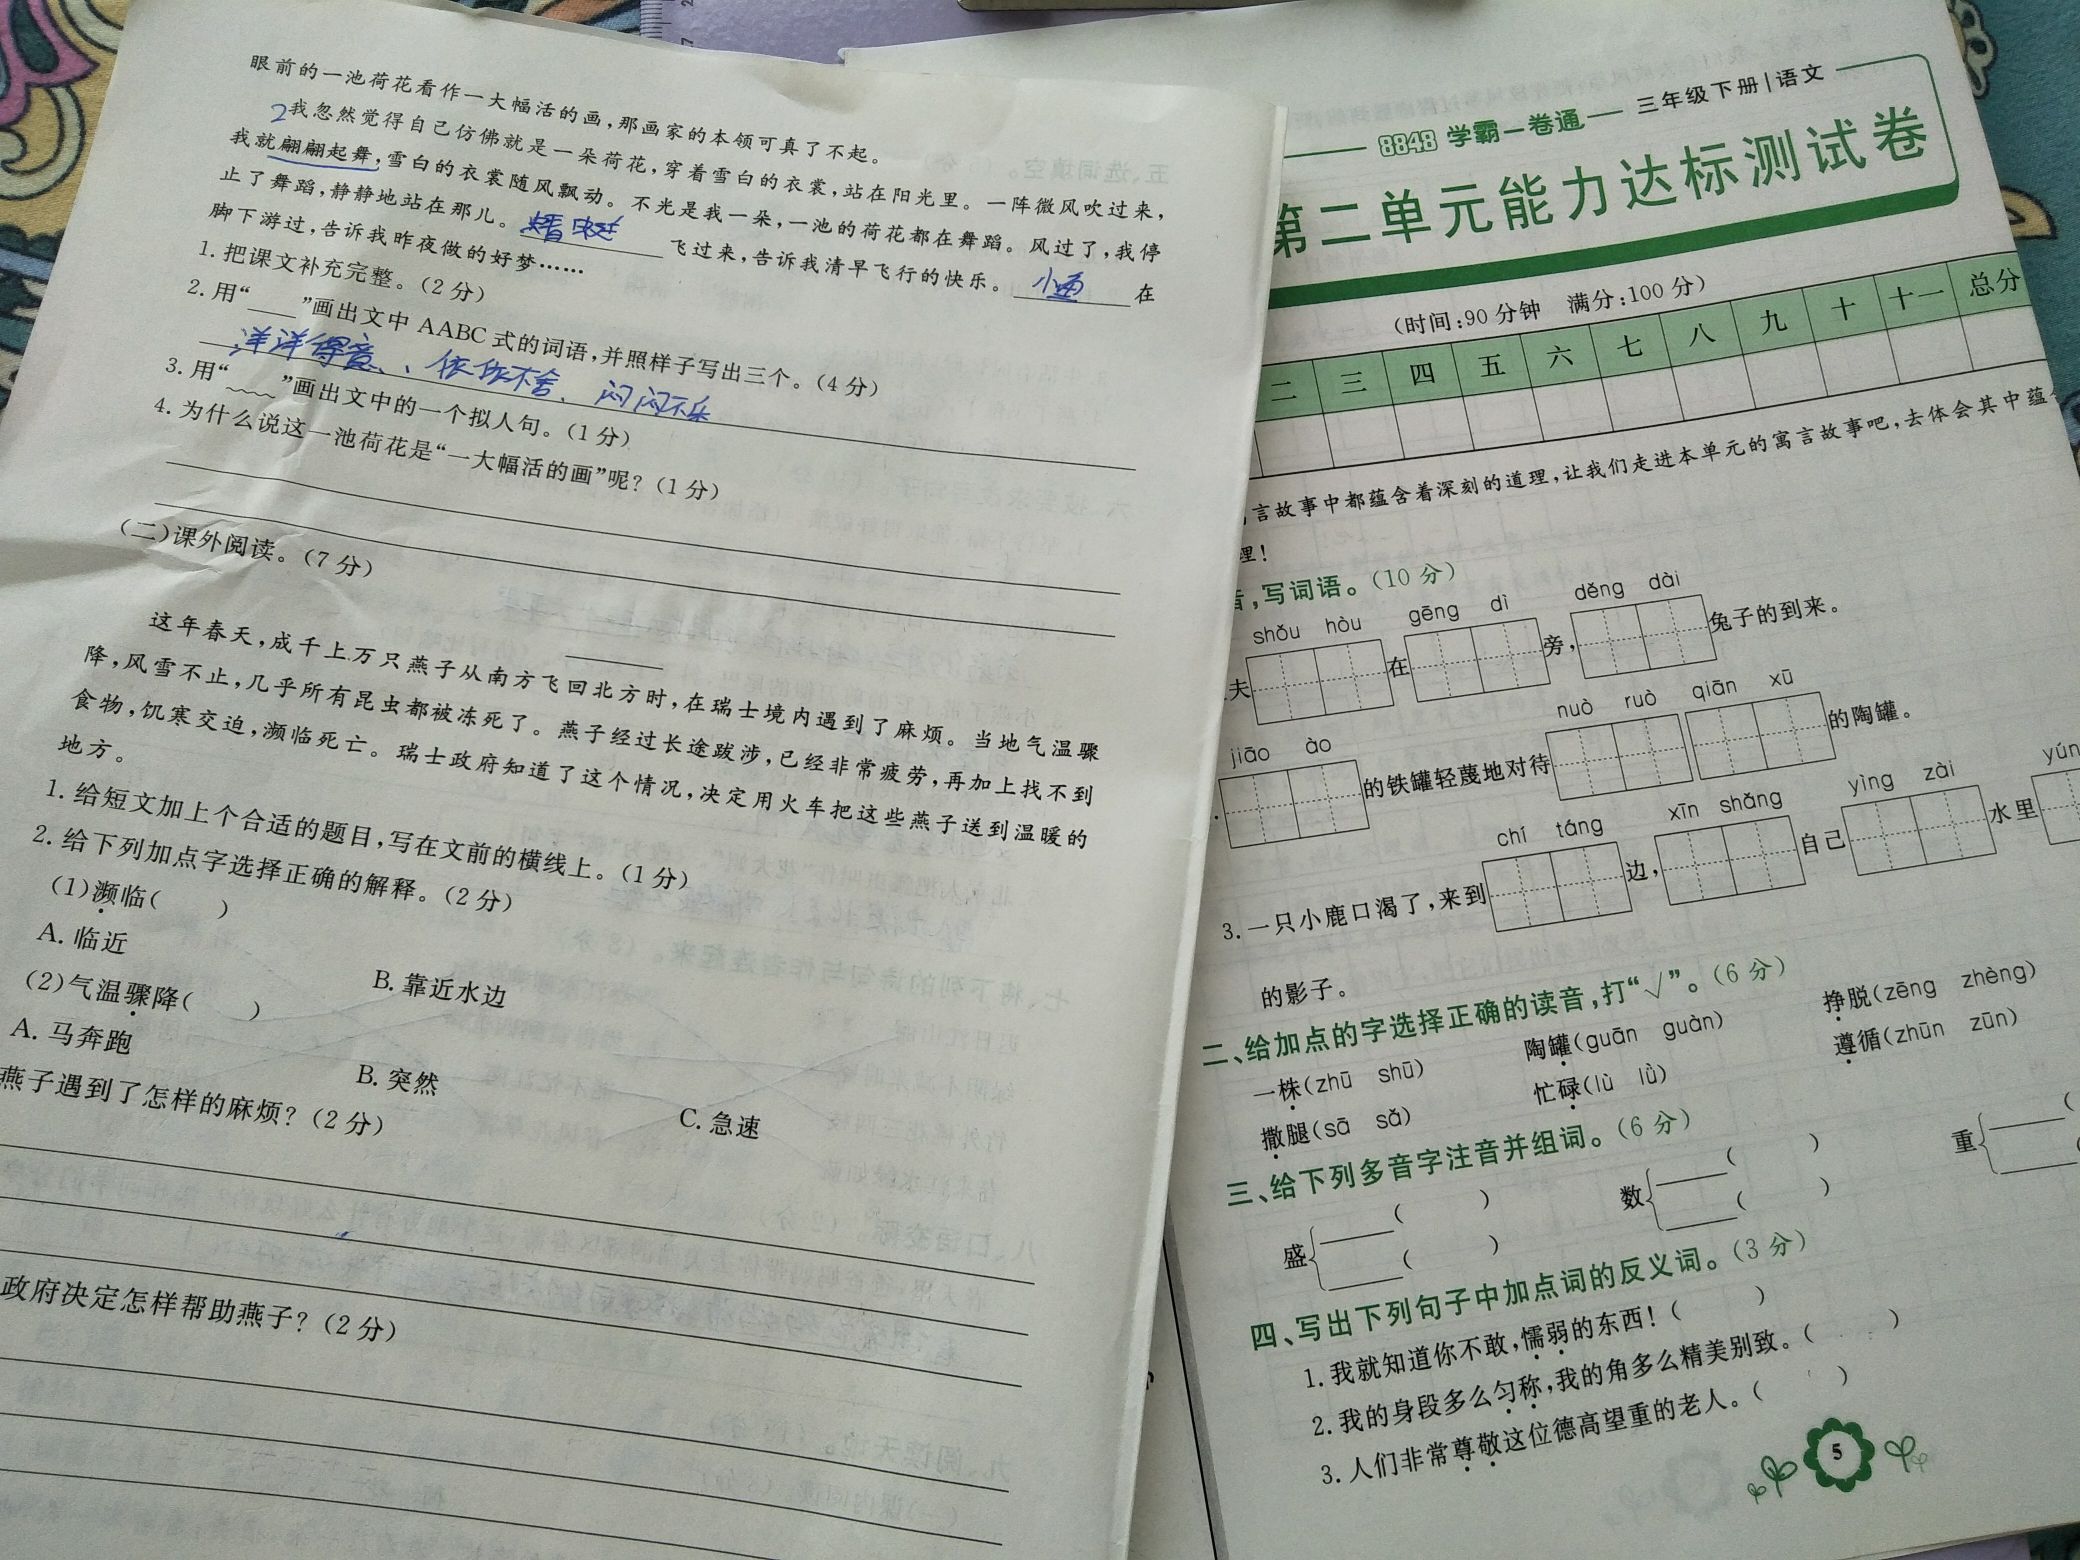 眼前的一池荷花看作一大幅活的画,那画家的本领可真了不起。
2我忽然觉得自己仿佛就是一朵荷花,穿着雪白的衣裳,站在阳光里。一阵微风吹过来,
我就翩翩起舞,雪白的衣裳随风飘动。不光是我一朵,一池的荷花都在舞蹈。风过了,我停
止了舞蹈,静静地站在那儿。蜻蜓飞过来,告诉我清早飞行的快乐。小鱼在
脚下游过,告诉我昨夜做的好梦……
1.把课文补充完整。(2分)
2.用“____”画出文中AABC式的词语,并照样子写出三个。(4分)
洋洋得意、依依不舍、闷闷不乐
3.用“﹏﹏”画出文中的一个拟人句。(1分)
4.为什么说这一池荷花是“一大幅活的画”呢?(1分)
(二)课外阅读。(7分)
这年春天,成千上万只燕子从南方飞回北方时,在瑞士境内遇到了麻烦。当地气温骤
降,风雪不止,几乎所有昆虫都被冻死了。燕子经过长途跋涉,已经非常疲劳,再加上找不到
食物,饥寒交迫,濒临死亡。瑞士政府知道了这个情况,决定用火车把这些燕子送到温暖的
地方。
1.给短文加上个合适的题目,写在文前的横线上。(1分)
2.给下列加点字选择正确的解释。(2分)
(1)濒临( )
A.临近 B.靠近水边
(2)气温骤降( )
A.马奔跑 B.突然 C.急速
燕子遇到了怎样的麻烦?(2分)
政府决定怎样帮助燕子?(2分)
8848 学霸一卷通 三年级下册|语文
第二单元能力达标测试卷
(时间:90分钟 满分:100分)
二 三 四 五 六 七 八 九 十 十一 总分
言故事中都蕴含着深刻的道理,让我们走进本单元的寓言故事吧,去体会其中蕴
理!
音,写词语。(10分)
shǒu hòu gēng dì děng dài
夫 在 旁, 兔子的到来。
jiāo ào nuò ruò qiān xū
的铁罐轻蔑地对待 的陶罐。
chí táng xīn shǎng yìng zài yún
3.一只小鹿口渴了,来到 边, 自己 水里
的影子。
二、给加点的字选择正确的读音,打“√”。(6分)
一株(zhū shū) 陶罐(guān guàn) 挣脱(zēng zhèng)
撒腿(sā sǎ) 忙碌(lù lǜ) 遵循(zhūn zūn)
三、给下列多音字注音并组词。(6分)
盛 ( ) ( ) 数 ( ) ( ) 重 (
四、写出下列句子中加点词的反义词。(3分)
1.我就知道你不敢,懦弱的东西!( )
2.我的身段多么匀称,我的角多么精美别致。( )
3.人们非常尊敬这位德高望重的老人。( )
5